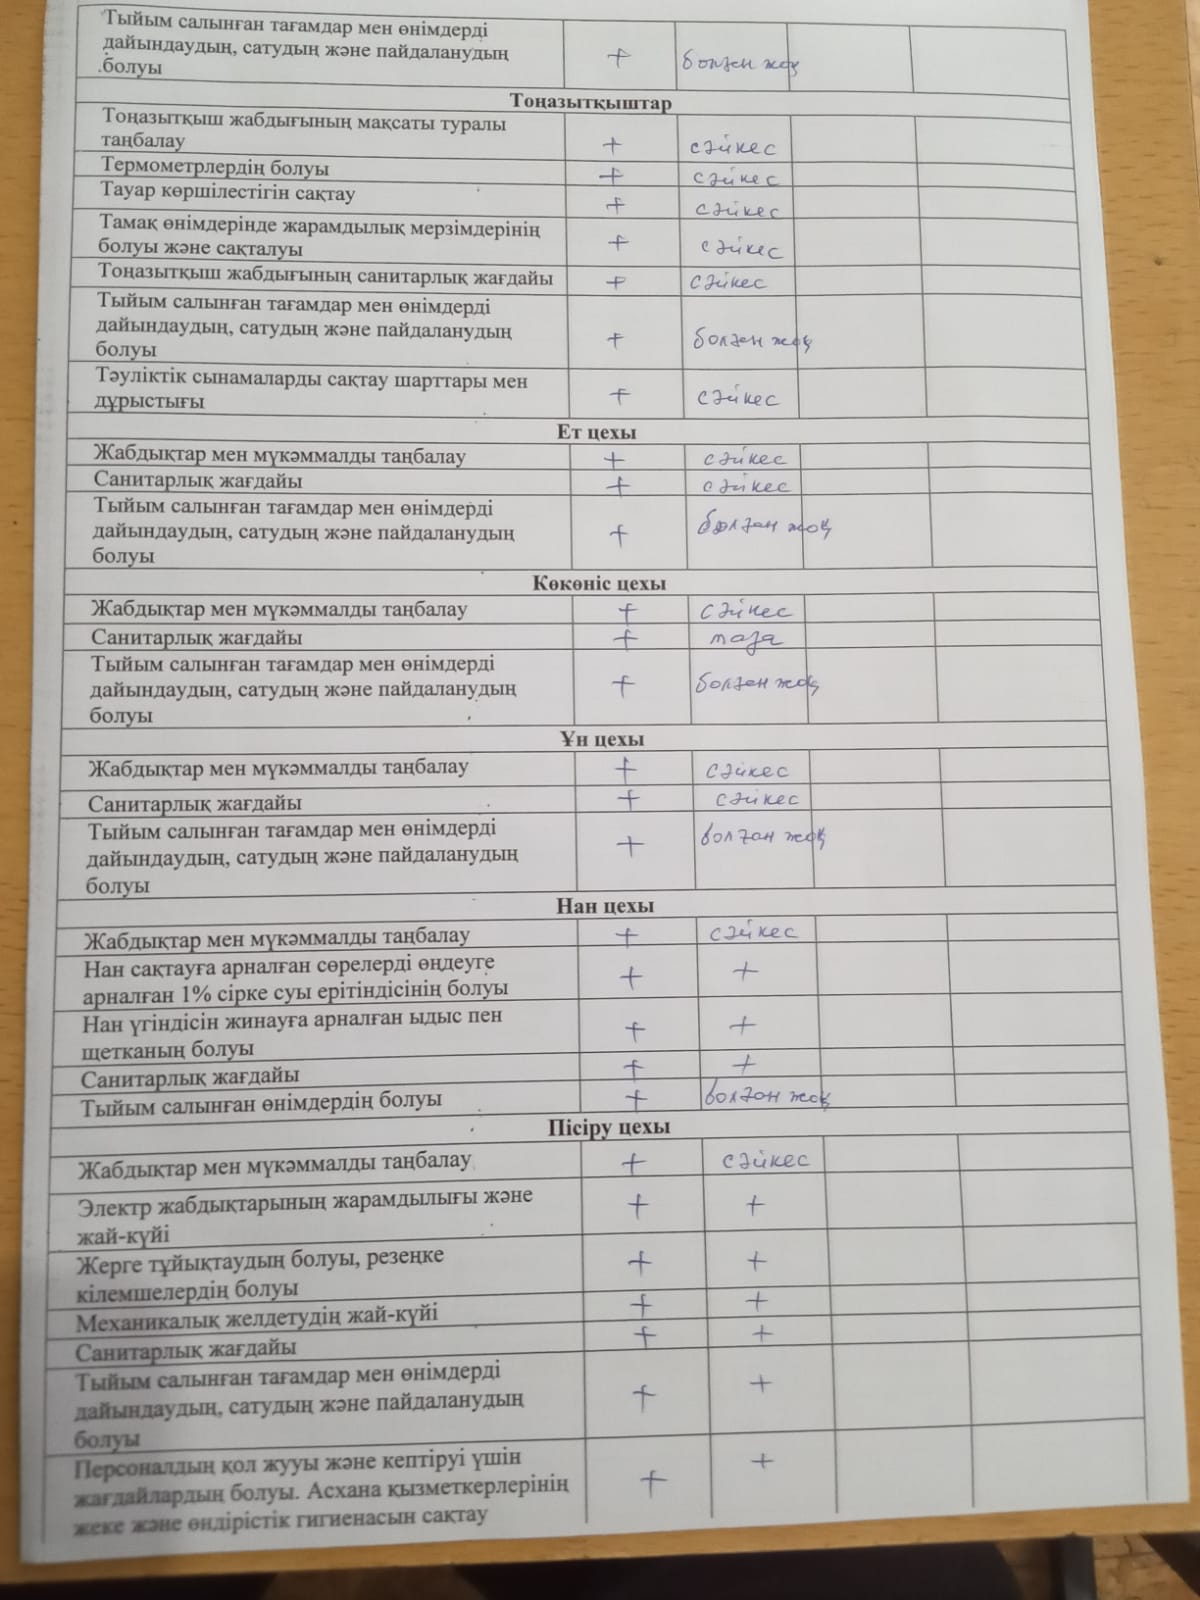 Тыйым салынған тағамдар мен өнімдерді
дайындаудың, сатудың және пайдаланудың
болуы + болған жоқ
Тоңазытқыштар
Тоңазытқыш жабдығының мақсаты туралы
таңбалау + сәйкес
Термометрлердің болуы + сәйкес
Тауар көршілестігін сақтау + сәйкес
Тамақ өнімдерінде жарамдылық мерзімдерінің
болуы және сақталуы + сәйкес
Тоңазытқыш жабдығының санитарлық жағдайы + сәйкес
Тыйым салынған тағамдар мен өнімдерді
дайындаудың, сатудың және пайдаланудың
болуы + болған жоқ
Тәуліктік сынамаларды сақтау шарттары мен
дұрыстығы + сәйкес
Ет цехы
Жабдықтар мен мүкәммалды таңбалау + сәйкес
Санитарлық жағдайы + сәйкес
Тыйым салынған тағамдар мен өнімдерді
дайындаудың, сатудың және пайдаланудың
болуы + болған жоқ
Көкөніс цехы
Жабдықтар мен мүкәммалды таңбалау + сәйкес
Санитарлық жағдайы + таза
Тыйым салынған тағамдар мен өнімдерді
дайындаудың, сатудың және пайдаланудың
болуы + болған жоқ
Ұн цехы
Жабдықтар мен мүкәммалды таңбалау + сәйкес
Санитарлық жағдайы + сәйкес
Тыйым салынған тағамдар мен өнімдерді
дайындаудың, сатудың және пайдаланудың
болуы + болған жоқ
Нан цехы
Жабдықтар мен мүкәммалды таңбалау + сәйкес
Нан сақтауға арналған сөрелерді өңдеуге
арналған 1% сірке суы ерітіндісінің болуы + +
Нан үгіндісін жинауға арналған ыдыс пен
щетканың болуы + +
Санитарлық жағдайы + +
Тыйым салынған өнімдердің болуы + болған жоқ
Пісіру цехы
Жабдықтар мен мүкәммалды таңбалау + сәйкес
Электр жабдықтарының жарамдылығы және
жай-күйі + +
Жерге тұйықтаудың болуы, резеңке
кілемшелердің болуы + +
Механикалық желдетудің жай-күйі + +
Санитарлық жағдайы + +
Тыйым салынған тағамдар мен өнімдерді
дайындаудың, сатудың және пайдаланудың
болуы + +
Персоналдың қол жууы және кептіруі үшін
жағдайлардың болуы. Асхана қызметкерлерінің
жеке және өндірістік гигиенасын сақтау + +